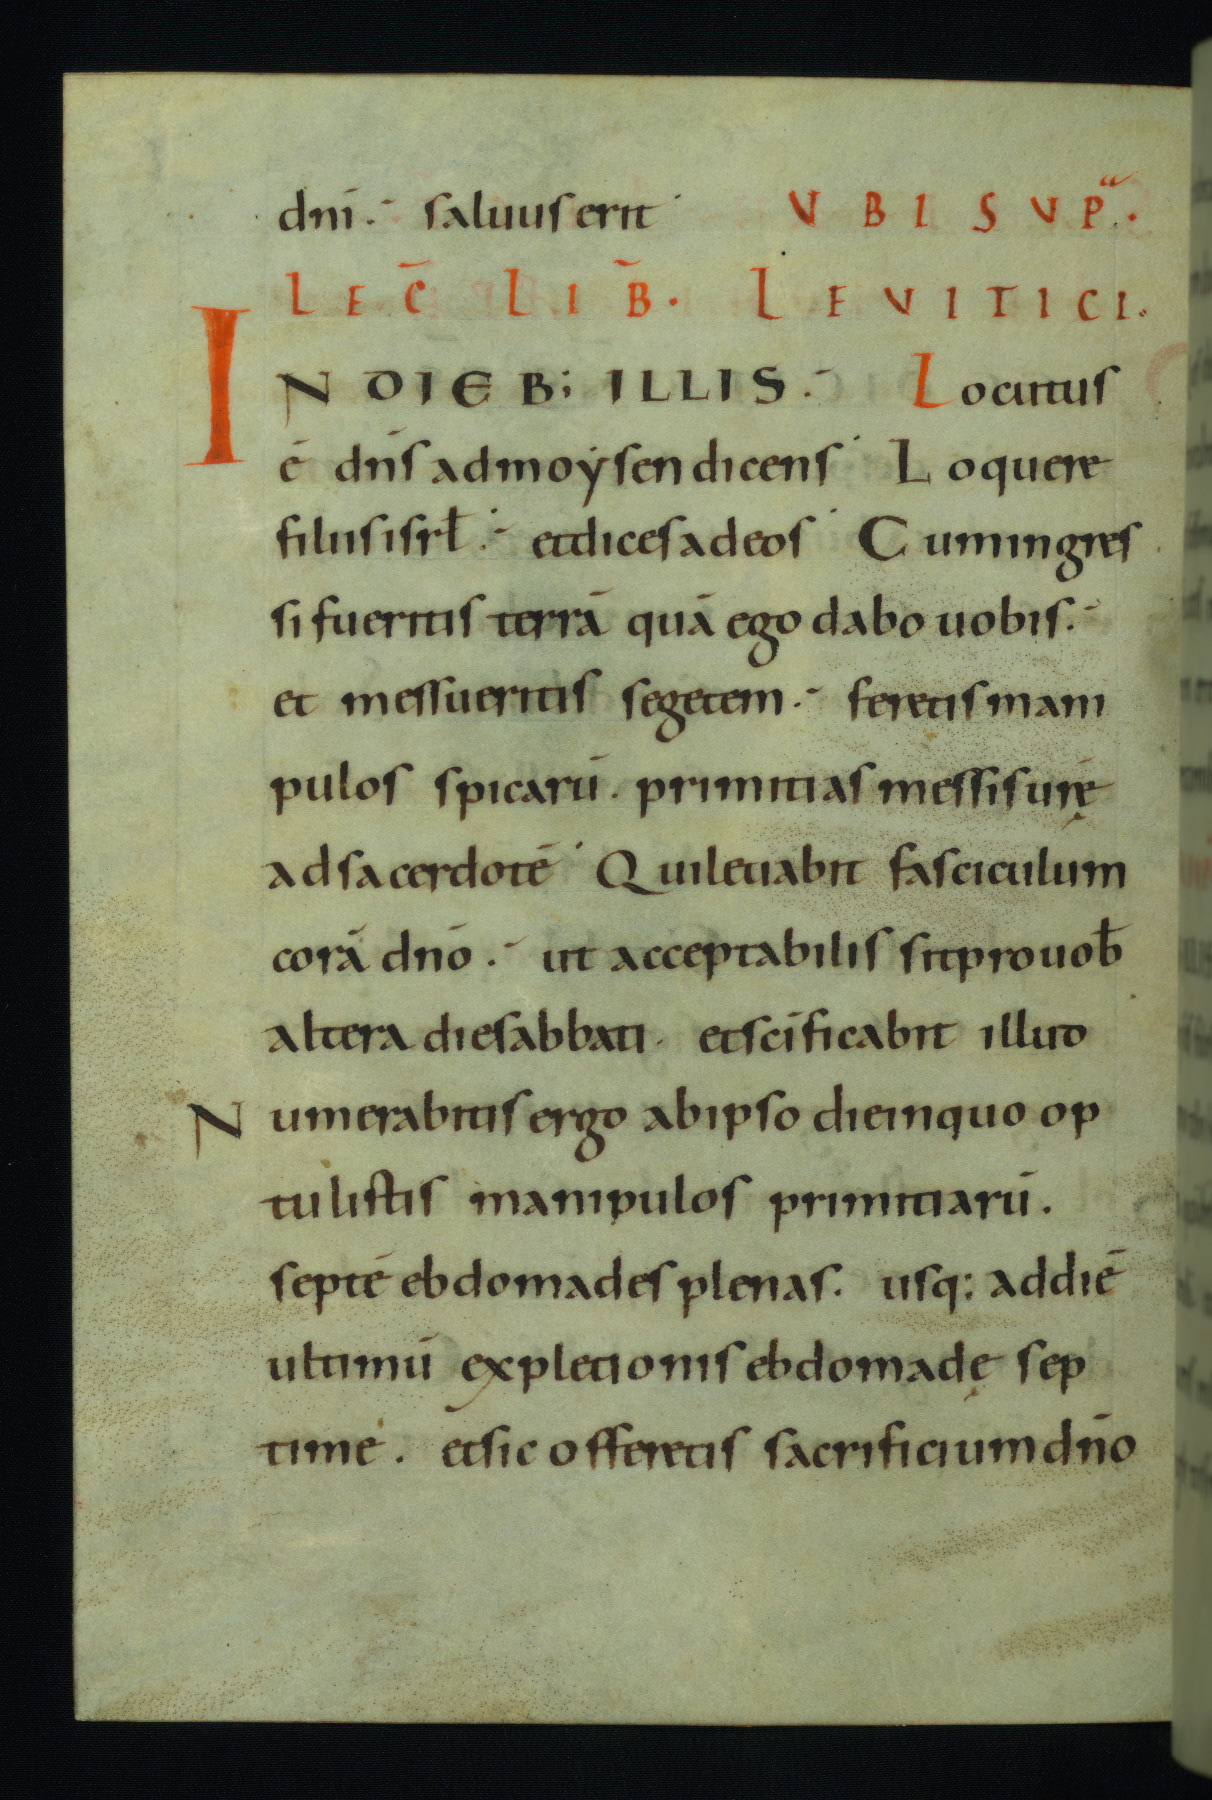 dnī. saluus erit UBI SUPᵃ.
LEC̄ LIB̄. LEVITICI.
IN DIEB; ILLIS. Locutus
ē dn̄s ad moẏsen dicens Loquere
filiis isrł. et dices ad eos Cum ingres
si fueritis terrā quā ego dabo uobis.
et messueritis segetem. feretis mani
pulos spicarū. primitias messis urę
ad sacerdotē Qui leuabit fasciculum
corā dn̄o. ut acceptabilis sit pro uob̄
altera die sabbati. et sc̄ificabit illud
Numerabitis ergo ab ipso die in quo op
tulistis manipulos primitiarū.
septē ebdomades plenas. usq; ad diē
ultimū expletionis ebdomadę sep
time. et sic offeretis sacrificium dn̄o